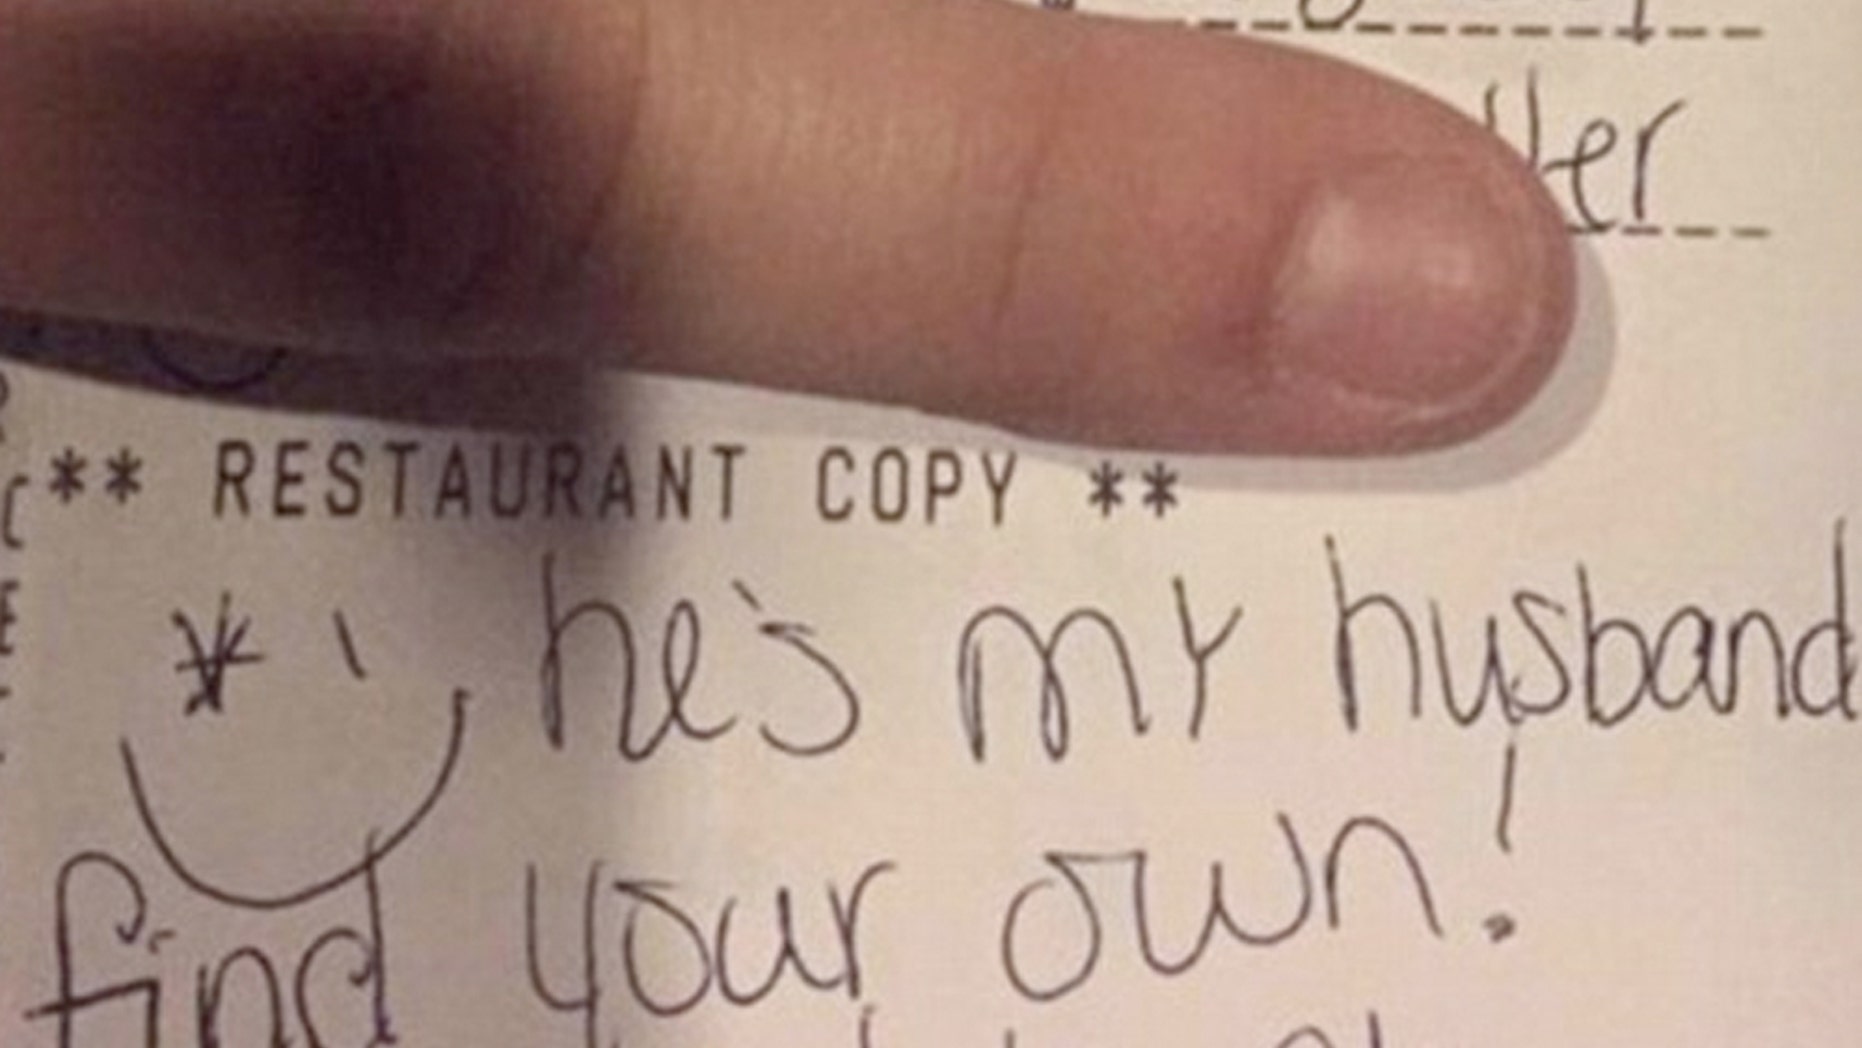 ** RESTAURANT COPY **
* he's my husband
find your own!